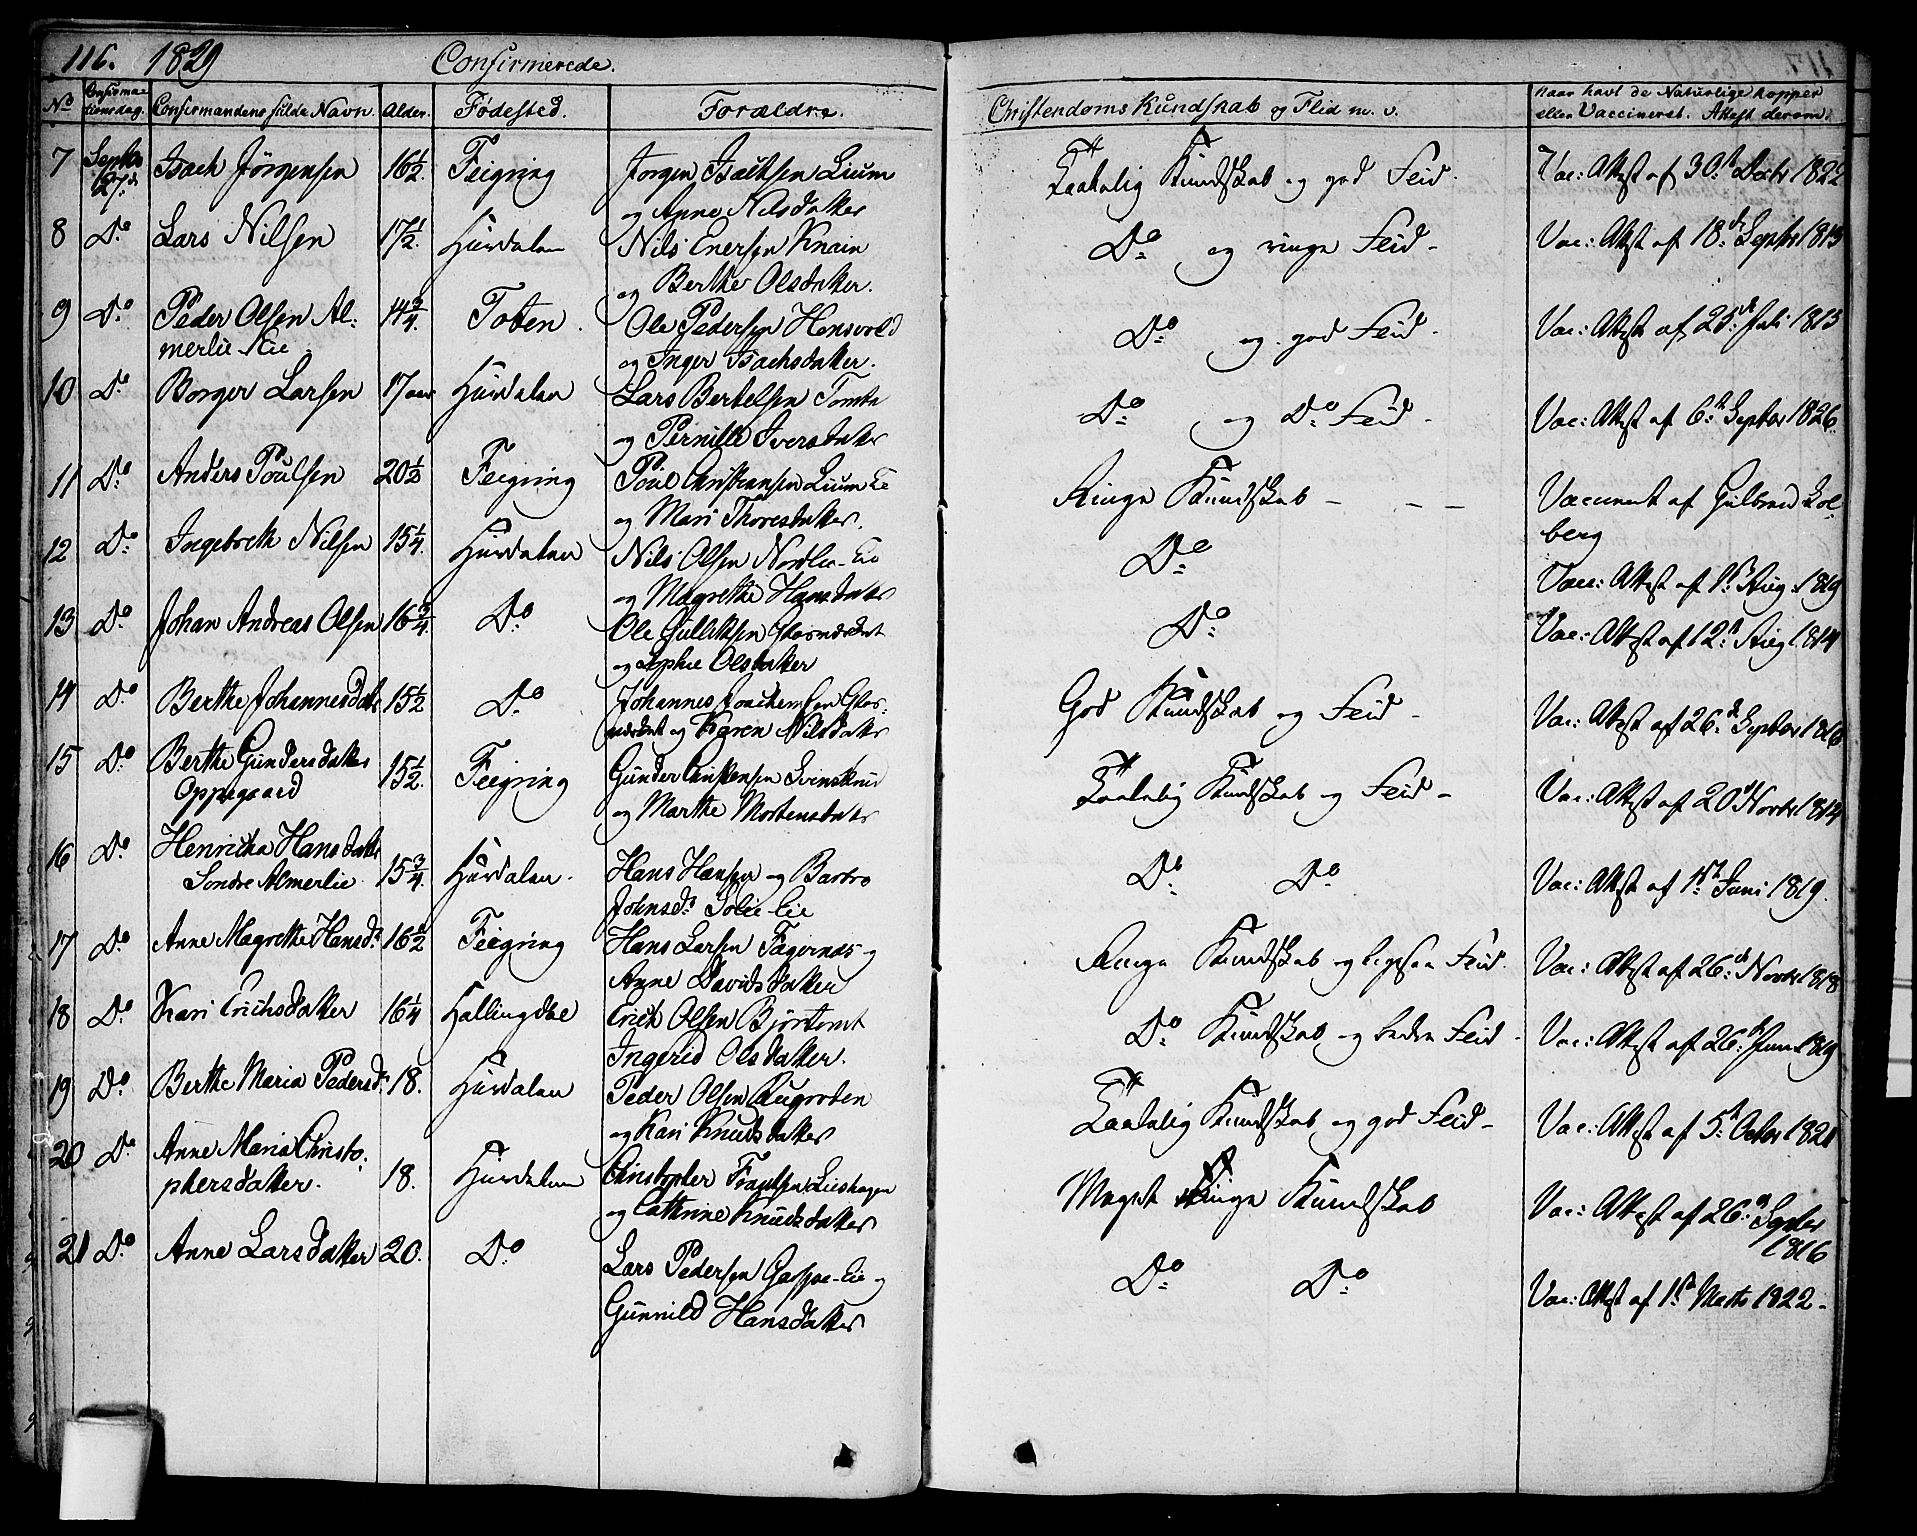 116. 1829 Confirmerede.
No Confirmationsdag. Confirmandens fulde Navn Alder. Fødested. Forældre. Christendoms Kundskab og Flid m. v. naar havt de Naturlige kopper
eller Vaccineret. Attest derom.
7 Septbr 27de Isach Jørgensen 16½ Feigring Jørgen Isachsen Lium Taalelig Kundskab og god Fliid. Vac: Attest af 30te 1822
og Anne Nilsdatter
8 Do Lars Nilsen 17½ Hurdalen Nils Enersen Knain Do og ringe Fliid - Vac: Attest af 18de Septbr 1813
og Berthe Olsdatter.
9 Do Peder Olsen Al- 14¾ Toten. Ole Pedersen Hensvold Do og god Fliid - Vac: Attest af 25de Juli 1815
merlie Eie og Inger Isachsdatter.
10 Do Borger Larsen 17 aar Hurdalen Lars Bertelsen Tomte Do og Do Fliid - Vac: Attest af 6te Septbr 1826.
og Pernille Iversdatter
11 Do Anders Poulsen 20½ Feigring Poul Christiansen Lium Eie Ringe Kundskab - - - Vaccineret af Gulbrand Sol-
og Mari Thoresdatter. berg
12 Do Ingebreth Nilsen 15¼ Hurdalen Nils Olsen Nordlie-Eie Do Vacc: Attest af 1ste Aug. 1819
og Magrethe Hansdatter
13 Do Johan Andreas Olsen 16¾ Do Ole Gulliksen Glasværket Do Vac: Attest af 12te Aug. 1814
og Sophie Olsdatter
14 Do Berthe Johannesdatr 15½ Do Johannes Joachemsen Glas- God Kundskab og Fliid - Vac: Attest af 26de Septbr 1816
værket og Karen Nilsdatter
15 Do Berthe Gundersdatter 15½. Feigring Gunder Christensen Svinsknud Taalelig Kundskab og Fliid - Vac: Attest af 20de Novbr 1814
Oppegaard og Marthe Mortensdatter
16 Do Henrikka Hansdatter 15¾ Hurdalen. Hans Hansen og Barbro Do Do Vac: Attest af 1ste Juni 1819.
Søndre Almerlie Johnsdr Solie-Eie
17 Do Anne Magrethe Hansdr 16½ Feigring Hans Larsen Fagernæs og Ringe Kundskab og ligesaa Fliid. Vac: Attest af 26de Novbr 1818
Anne Davidsdatter
18 Do Kari Erichsdatter 16¼ Hallingdal Erich Olsen Bjørtomt Do Kundskab og bedre Fliid - Vac: Attest af 26de 1819
Ingerid Olsdatter.
19 Do Berthe Maria Pedersdr 18. Hurdalen Peder Olsen Rugroden Taalelig Kundskab og god Fliid - Vac: Attest af 5te Octbr 1821
og Kari Knudsdatter
20 Do Anne Maria Christo- 18. Hurdalen Christopher Frantsen Lieshagen Meget Ringe Kundskab Vac: Attest af 26de Septbr
phersdatter. og Cathrine Knudsdatter 1816
21 Do Anne Larsdatter 20. Do Lars Pedersen Garsjøe-Eie og Do Do Vac: Attest af 1ste Marts 1822 -
Gunnild Hansdatter